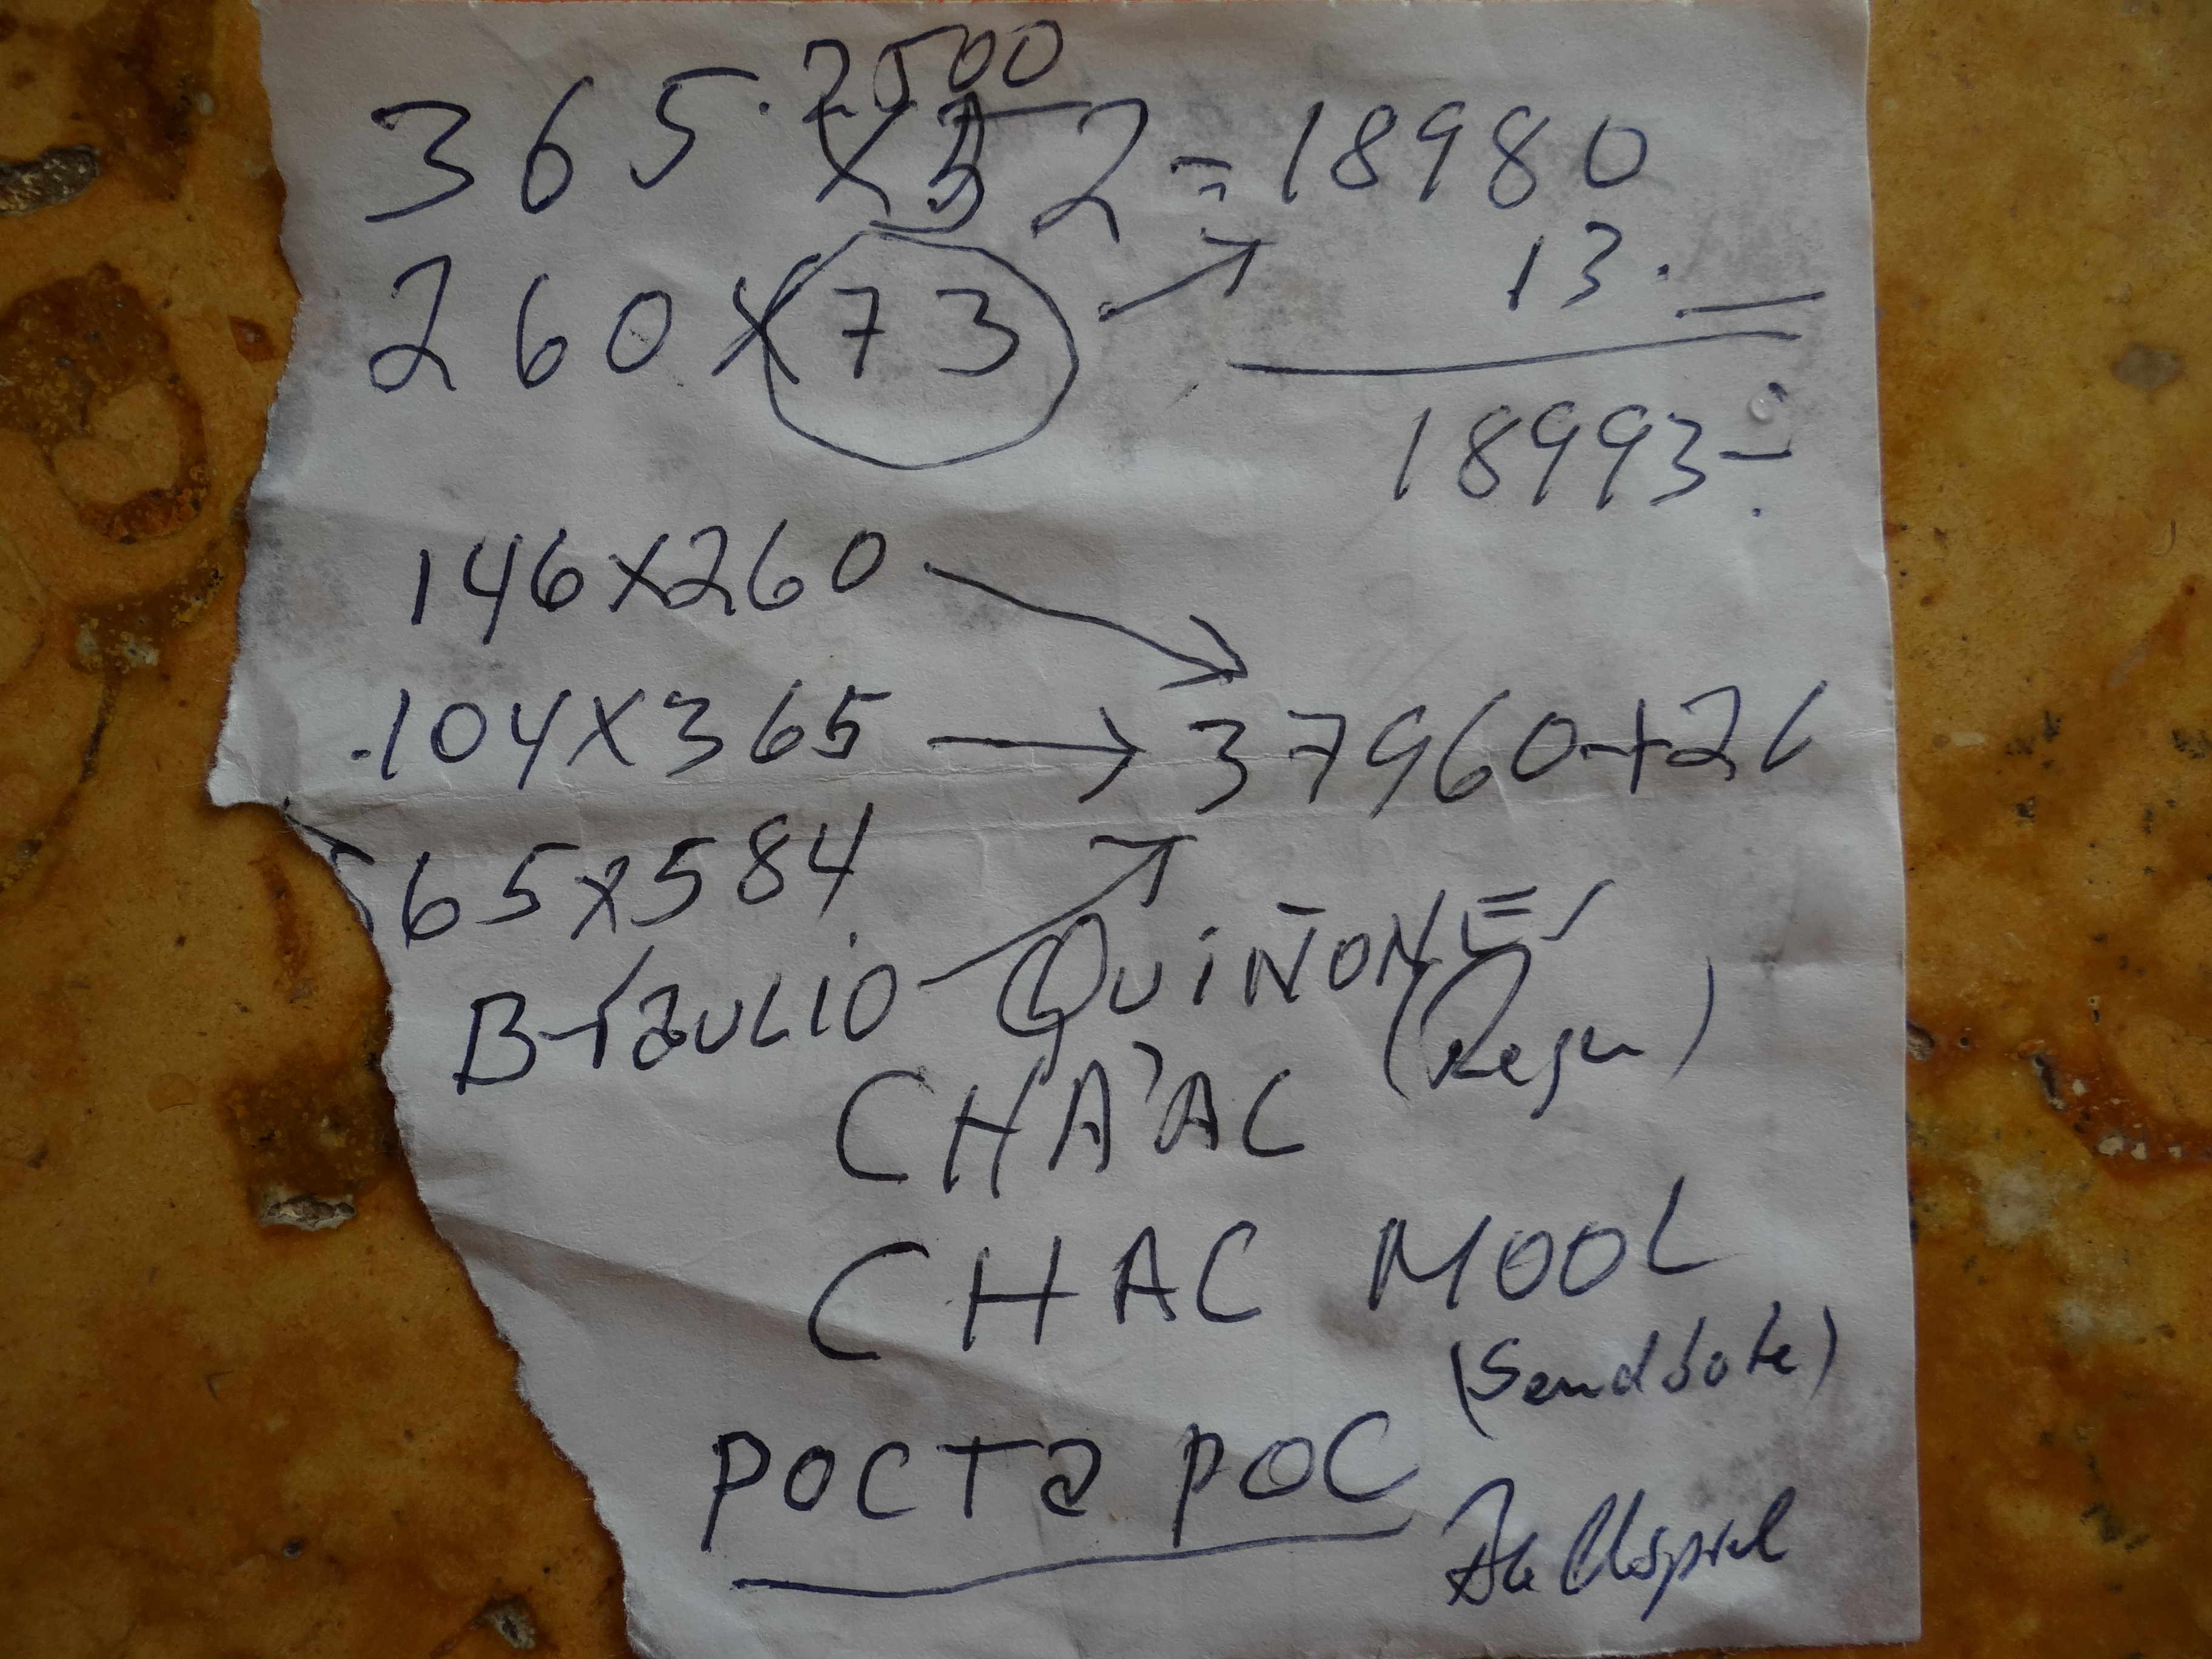 2500
365 · x 52 = 18980
13.
260 x 73
18993
146x260
.104x365 37960+26
65x584
Braulio QUIÑONES
(Regen)
CHA'AC
CHAC MOOL
(Sendbote)
POCTa POC
Ballspiel